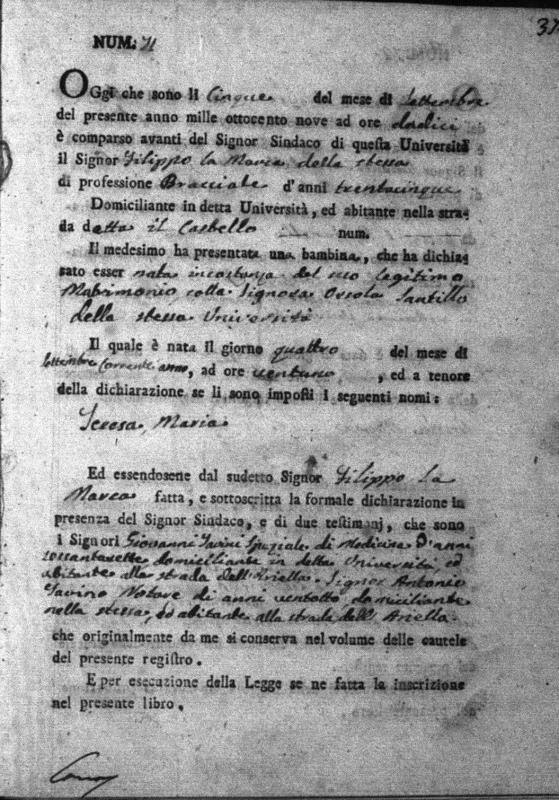 37
NUM: 71
OGgi che sono li Cinque del mese di Settembre
del presente anno mille ottocento nove ad ore dodici
è comparso avanti del Signor Sindaco di questa Università
il Signor Filippo la Marca della stessa
di professione Bracciale d'anni trentacinque
Domiciliante in detta Università, ed abitante nella stra-
da detta il Castello num.
Il medesimo ha presentata una bambina, che ha dichia-
rato esser nata in costanza del suo legitimo
Matrimonio colla Signora Orsola Santillo
della stessa Università
Il quale è nata il giorno quattro del mese di
Settembre corrente anno, ad ore ventuno, ed a tenore
della dichiarazione se li sono imposti i seguenti nomi:
Teresa, Maria
Ed essendosene dal sudetto Signor Filippo la
Marca fatta, e sottoscritta la formale dichiarazione in
presenza del Signor Sindaco, e di due testimonj, che sono
i Signori Giovanni Iavini Speziale di Medicina d'anni
sessantasette domiciliante in detta Università ed
abitante alla strada dell'Ariella. Signor Antonio
Iavino Notare di anni ventotto domiciliante
nella stessa, ed abitante alla strada dell'Ariella
che originalmente da me si conserva nel volume delle cautele
del presente registro.
E per esecuzione della Legge se ne fatta la inscrizione
nel presente libro.